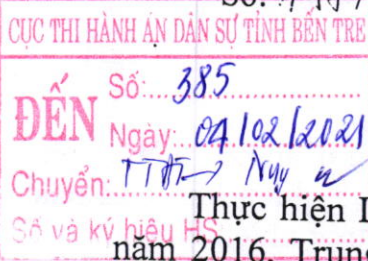 Số:
CỤC THI HÀNH ÁN DÂN SỰ TỈNH BẾN TRE
ĐẾN
Số: 385
Ngày: 04/02/2021
Chuyển:
Số và ký hiệu HS
Thực hiện
năm 2016, Trung